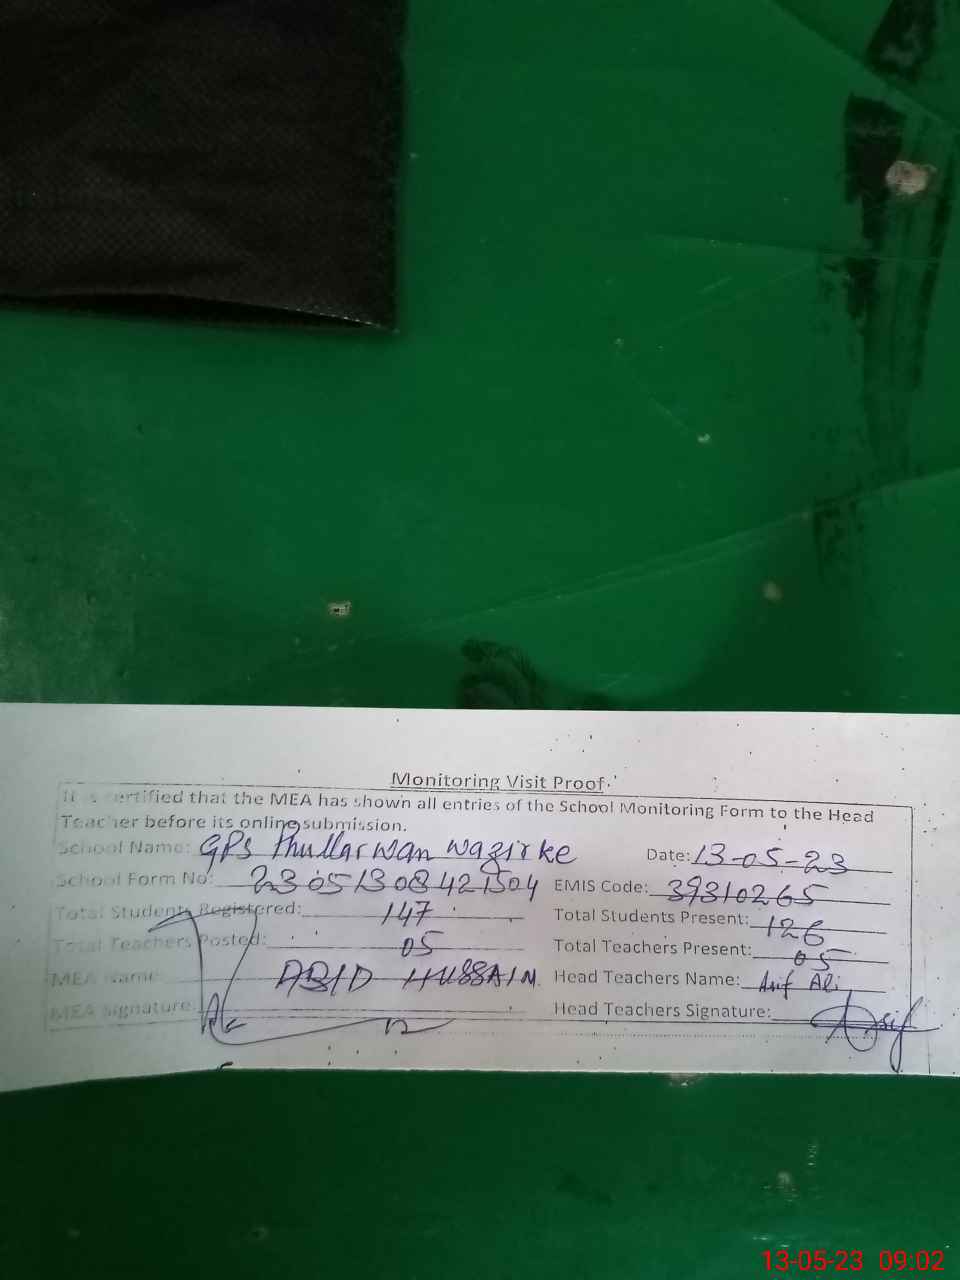 Monitoring Visit Proof
It is certified that the MEA has shown all entries of the School Monitoring Form to the Head
Teacher before its online submission.
School Name: GPS Thullarwan Wazirke Date: 13-05-23
School Form No: 23051308421504 EMIS Code: 39310265
Total Students Registered: 147 Total Students Present: 126
Total Teachers Posted: 05 Total Teachers Present: 05
MEA Name: ABID HUSSAIN Head Teachers Name: Asif Ali
MEA Signature: Head Teachers Signature: Asif
13-05-23 09:02